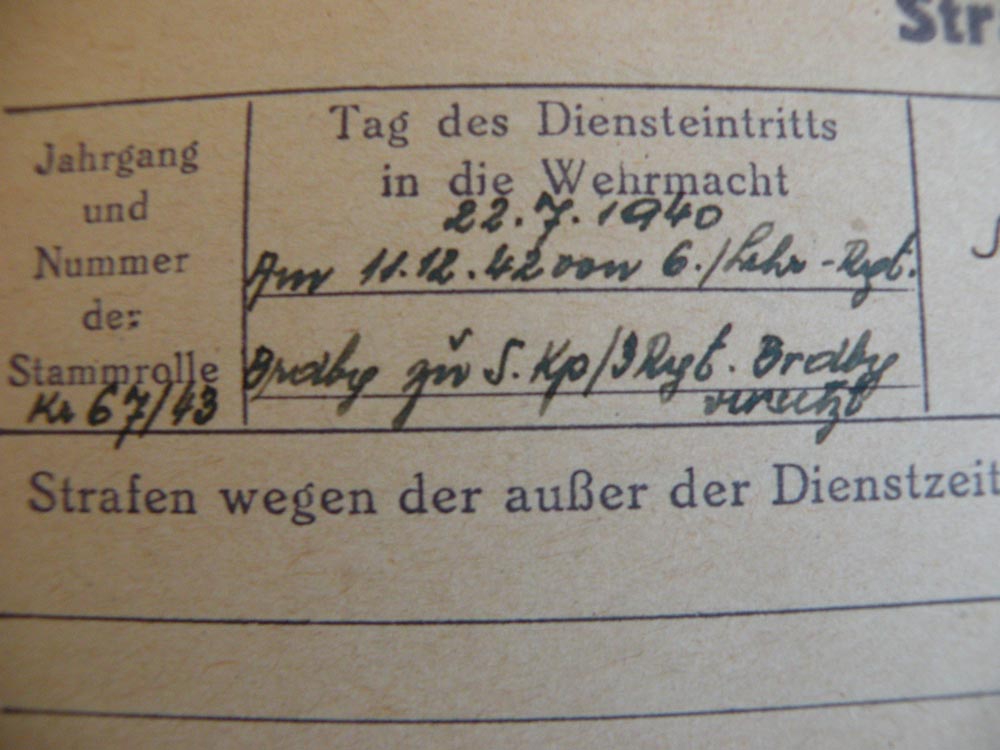 Str
Jahrgang
und
Nummer
der
Stammrolle
Kr 67/43
Tag des Diensteintritts
in die Wehrmacht
22.7.1940
Am 11.12.42 von 6./Lehr-Rgt.
Brdbg zu 5. Kp/3 Rgt. Brdbg
versetzt
Strafen wegen der außer der Dienstzeit